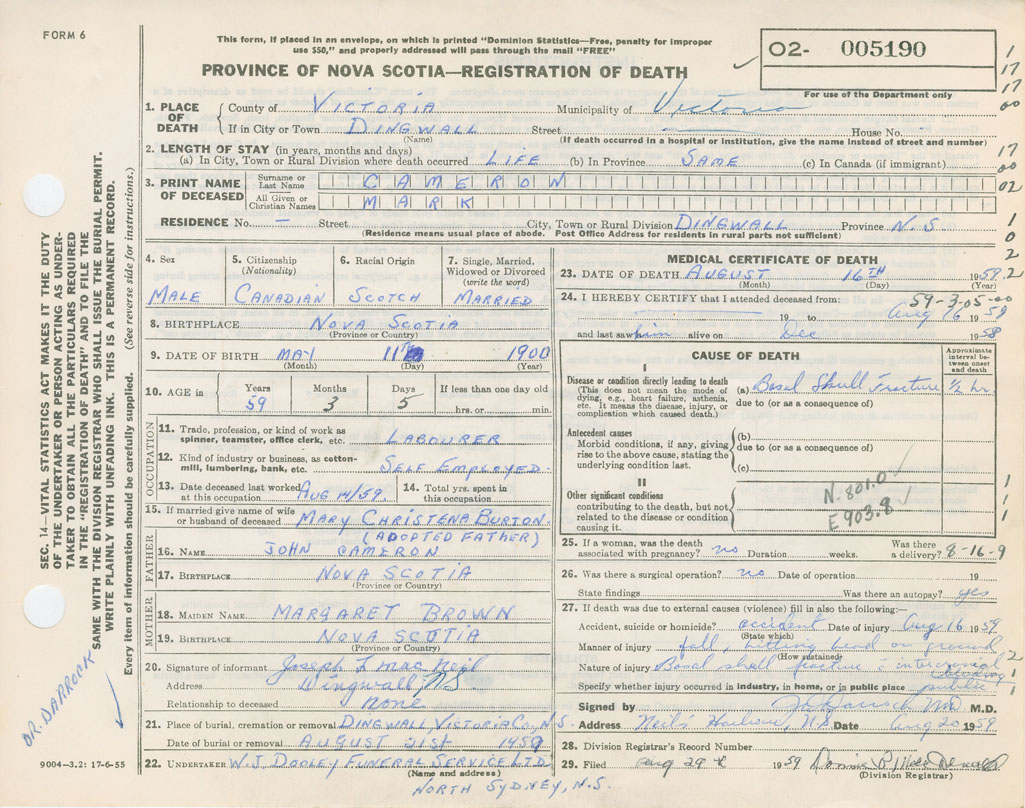 FORM 6
This form, if placed in an envelope, on which is printed "Dominion Statistics—Free, penalty for improper
use $50," and properly addressed will pass through the mail "FREE"
PROVINCE OF NOVA SCOTIA—REGISTRATION OF DEATH
02- 005190
For use of the Department only
1
17
17
00
1. PLACE OF DEATH
County of VICTORIA Municipality of Victoria
If in City or Town DINGWALL Street House No.
(Name) (If death occurred in a hospital or institution, give the name instead of street and number)
2. LENGTH OF STAY (in years, months and days)
(a) In City, Town or Rural Division where death occurred LIFE (b) In Province SAME (c) In Canada (if immigrant)
17
00
02
3. PRINT NAME OF DECEASED
Surname or Last Name CAMERON
All Given or Christian Names MARK
RESIDENCE No. — Street City, Town or Rural Division DINGWALL Province N.S
(Residence means usual place of abode. Post Office Address for residents in rural parts not sufficient)
1
0
2
2
4. Sex
MALE
5. Citizenship
(Nationality)
CANADIAN
6. Racial Origin
SCOTCH
7. Single, Married,
Widowed or Divorced
(write the word)
MARRIED
8. BIRTHPLACE NOVA SCOTIA
(Province or Country)
9. DATE OF BIRTH MAY 11TH 1900
(Month) (Day) (Year)
10. AGE in
Years Months Days If less than one day old
59 3 5 hrs. or min.
OCCUPATION
11. Trade, profession, or kind of work as
spinner, teamster, office clerk, etc. LABOURER
12. Kind of industry or business, as cotton-
mill, lumbering, bank, etc. SELF EMPLOYED
13. Date deceased last worked
at this occupation AUG 14/59.
14. Total yrs. spent in
this occupation
15. If married give name of wife
or husband of deceased MARY CHRISTENA BURTON
FATHER
(ADOPTED FATHER)
16. NAME JOHN CAMERON
17. BIRTHPLACE NOVA SCOTIA
(Province or Country)
MOTHER
18. MAIDEN NAME MARGARET BROWN
19. BIRTHPLACE NOVA SCOTIA
(Province or Country)
20. Signature of informant Joseph L mac Neil
Address Dingwall, N.S.
Relationship to deceased none
21. Place of burial, cremation or removal DINGWALL VICTORIA CO., N.S.
Date of burial or removal AUGUST 21st 1959
22. UNDERTAKER W.J. DOOLEY FUNERAL SERVICE LTD.
(Name and address)
NORTH SYDNEY, N.S.
MEDICAL CERTIFICATE OF DEATH
23. DATE OF DEATH AUGUST 16TH 1959
(Month) (Day) (Year)
24. I HEREBY CERTIFY that I attended deceased from:
59-3-05-00
19 to Aug 16 1959
and last saw him alive on Dec 1958
CAUSE OF DEATH
Approximate interval between onset and death
I
Disease or condition directly leading to death
(This does not mean the mode of
dying, e.g., heart failure, asthenia,
etc. It means the disease, injury, or
complication which caused death.)
(a) Basal Skull Fracture 1/2 hr.
due to (or as a consequence of)
Antecedent causes
Morbid conditions, if any, giving
rise to the above cause, stating the
underlying condition last.
(b)
due to (or as a consequence of)
(c)
II
Other significant conditions
contributing to the death, but not
related to the disease or condition
causing it.
N.801.0
E903.8
1
1
1
25. If a woman, was the death
associated with pregnancy? no Duration weeks. Was there
a delivery? 8-16-9
26. Was there a surgical operation? no Date of operation 19
State findings Was there an autopsy? yes
27. If death was due to external causes (violence) fill in also the following:—
Accident, suicide or homicide? accident Date of injury Aug 16 1959
(State which)
Manner of injury fall, hitting head on ground
(How sustained)
Nature of injury Basal skull fracture intercranial
Specify whether injury occurred in industry, in home, or in public place public
2
1
1
Signed by M.D.
Address Neil's Harbour, N.S. Date Aug 20 1959
28. Division Registrar's Record Number
29. Filed Aug 29 1959
(Division Registrar)
SEC. 14—VITAL STATISTICS ACT MAKES IT THE DUTY
OF THE UNDERTAKER OR PERSON ACTING AS UNDER-
TAKER TO OBTAIN ALL THE PARTICULARS REQUIRED
IN THE "REGISTRATION OF DEATH" AND TO FILE THE
SAME WITH THE DIVISION REGISTRAR WHO SHALL ISSUE THE BURIAL PERMIT.
WRITE PLAINLY WITH UNFADING INK. THIS IS A PERMANENT RECORD.
Every item of information should be carefully supplied. (See reverse side for instructions.)
DR. DARROCK
9004—3.2: 17-6-55